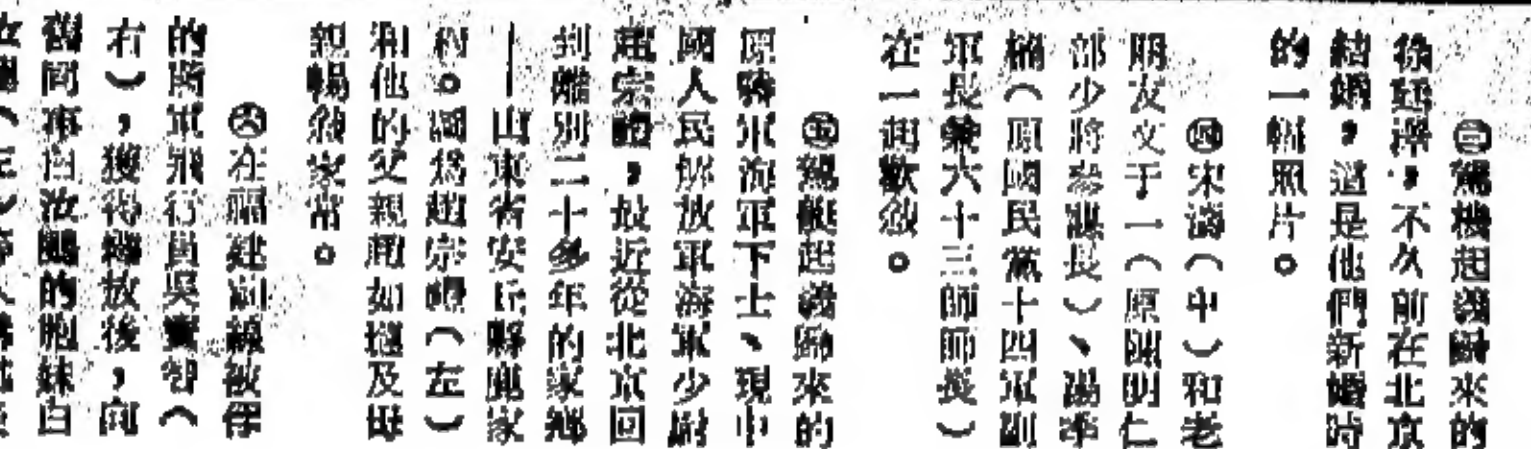 ㊂駕機起義歸來的
徐廷澤，不久前在北京
結婚，這是他們新婚時
的一幅照片。
㊃宋濤（中）和老
朋友文于一（原陳明仁
部少將參謀長）、湯季
楠（原國民黨十四軍副
軍長兼六十三師師長）
在一起歡敘。
㊄駕艇起義歸來的
原蔣軍海軍下士、現中
國人民解放軍海軍少尉
趙宗禮，最近從北京回
到離別二十多年的家鄉
—山東省安丘縣 家
村。圖爲趙宗禮（左）
和他的父親趙如 及母
親暢敘家常。
㊅在福建前線被俘
的蔣軍飛行員吳寶智（
右），獲得釋放後，向
舊同事白汝鶴的胞妹白
汝 （左）